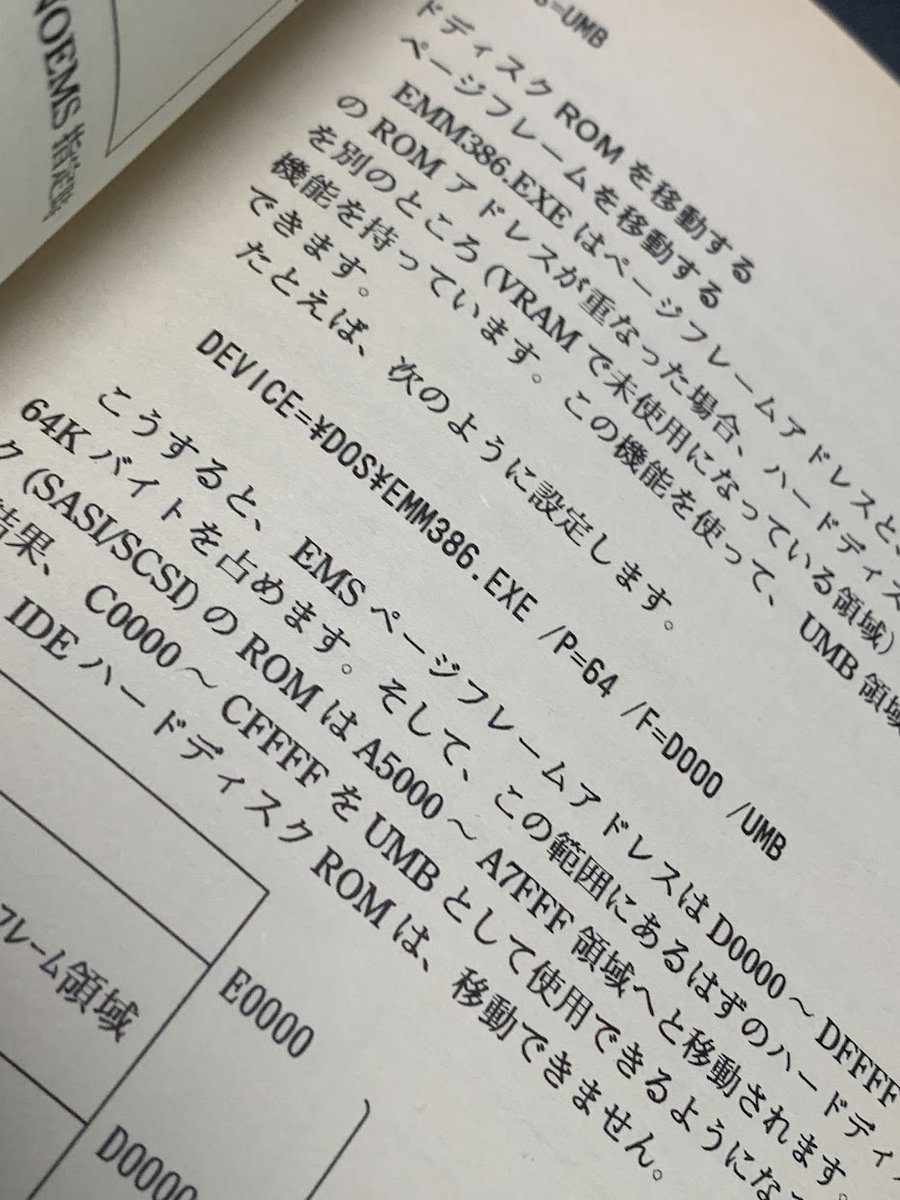 NOEMS 指定時
=UMB
ドディスク ROM を移動する
ページフレームを移動する
EMM386.EXE はページフレームアドレスと、
の ROM アドレスが重なった場合、ハードディス
を別のところ (VRAM で未使用になっている領域)
機能を持っています。この機能を使って、UMB 領域
できます。
たとえば、次のように設定します。
DEVICE=¥DOS¥EMM386.EXE /P=64 /F=D000 /UMB
こうすると、EMS ページフレームアドレスは D0000～DFFFF
64K バイトを占めます。そして、この範囲にあるはずのハードディ
ク (SASI/SCSI) の ROM は A5000～A7FFF 領域へと移動されます。
結果、C0000～CFFFF を UMB として使用できるようにな
IDE ハードディスク ROM は、移動できません。
フレーム領域
E0000
D0000